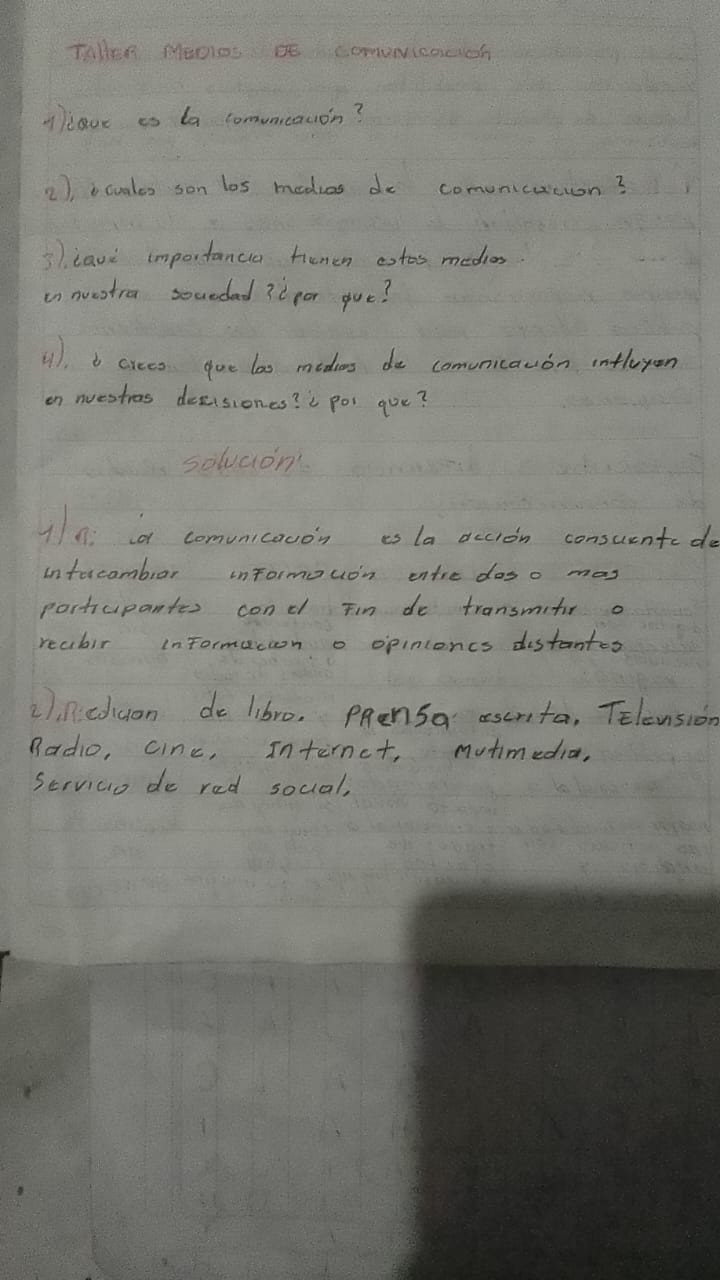 TAllER MEDIOS DE COMUNICACIÓN
1)¿que es la comunicación?
2), ¿cuales son los medios de comunicacion?
3).¿qué importancia tienen estos medios.
en nuestra sociedad?¿por que?
4). ¿ crees que los medios de comunicación influyen
en nuestras desisiones?¿por que?
solución:
1)R: la comunicación es la acción consciente de
intercambiar información entre dos o mas
participantes con el Fin de transmitir o
recibir información o opiniones distantes
2).R:edicion de libro. PRensa escrita, TElevisión
Radio, cine, Internet, Mutimedia,
Servicio de red social,